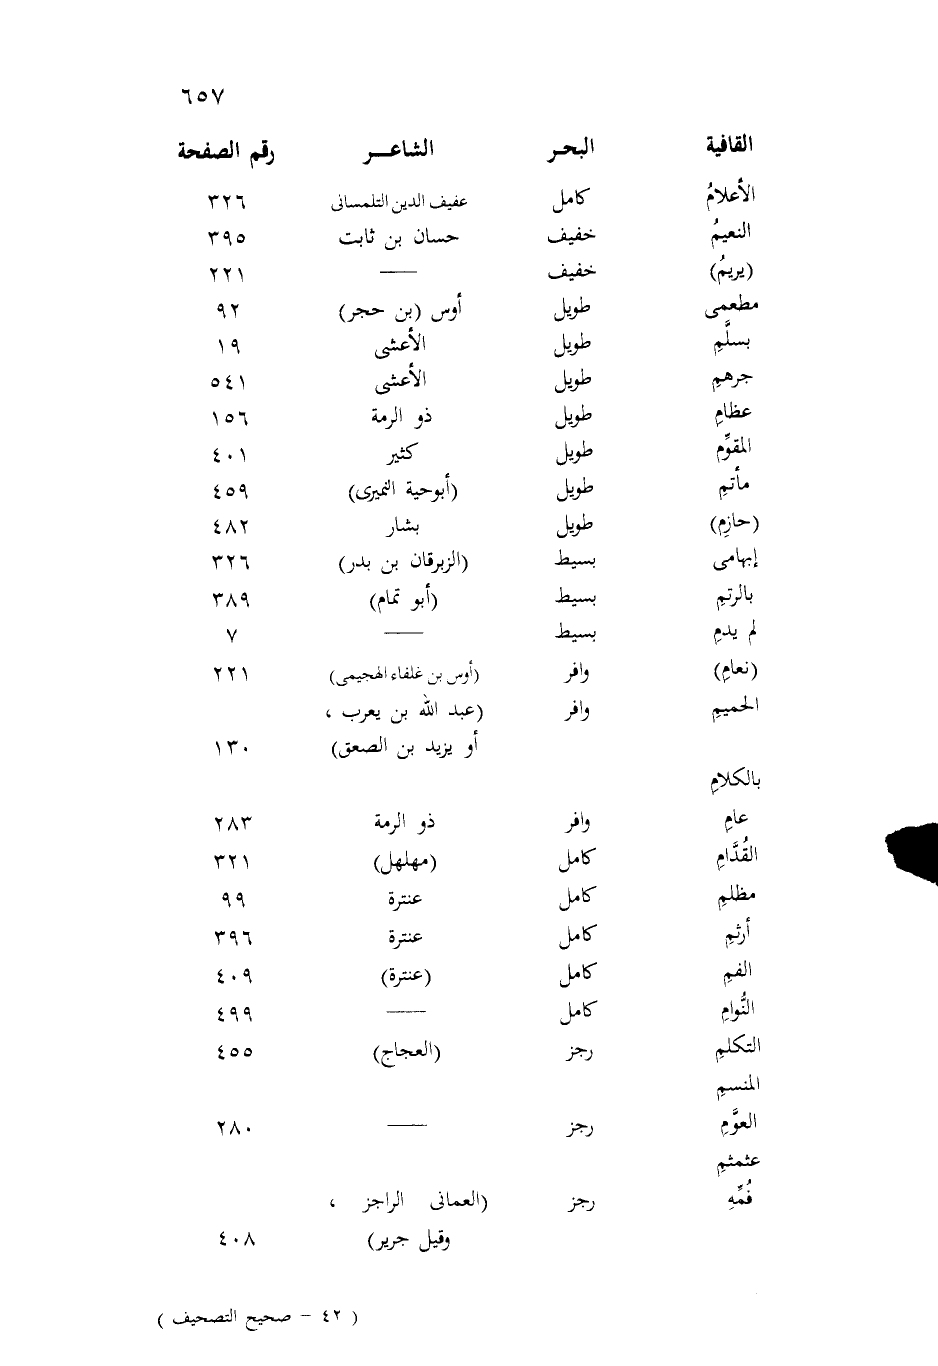 ٦٥٧
القافية البحر الشاعر رقم الصفحة
الأعلامُ كامل عفيف الدين التلمسانى ٣٢٦
النعيمُ خفيف حسان بن ثابت ٣٩٥
(يريمُ) خفيف —— ٢٢١
مطعمى طويل أوس (بن حجر) ٩٢
بسلَّمِ طويل الأعشى ١٩
جرهمِ طويل الأعشى ٥٤١
عظامِ طويل ذو الرمة ١٥٦
المقوِّمِ طويل كثير ٤٠١
مأتمِ طويل (أبوحية النميرى) ٤٥٩
(حازمِ) طويل بشار ٤٨٢
إبهامى بسيط (الزبرقان بن بدر) ٣٢٦
بالرتمِ بسيط (أبو تمام) ٣٨٩
لم يدمِ بسيط —— ٧
(نعامِ) وافر (أوس بن غلفاء الهجيمى) ٢٢١
الحميمِ وافر (عبد الله بن يعرب ،
أو يزيد بن الصعق) ١٣٠
بالكلامِ
عامِ وافر ذو الرمة ٢٨٣
القُدَّامِ كامل (مهلهل) ٣٢١
مظلمِ كامل عنترة ٩٩
أرثمِ كامل عنترة ٣٩٦
الفمِ كامل (عنترة) ٤٠٩
النُّوامِ كامل —— ٤٩٩
التكلمِ رجز (العجاج) ٤٥٥
المنسمِ
العوَّمِ رجز —— ٢٨٠
عثمثمِ
فُمِّهِ رجز (العمانى الراجز ،
وقيل جرير) ٤٠٨
( ٤٢ – صحيح التصحيف )